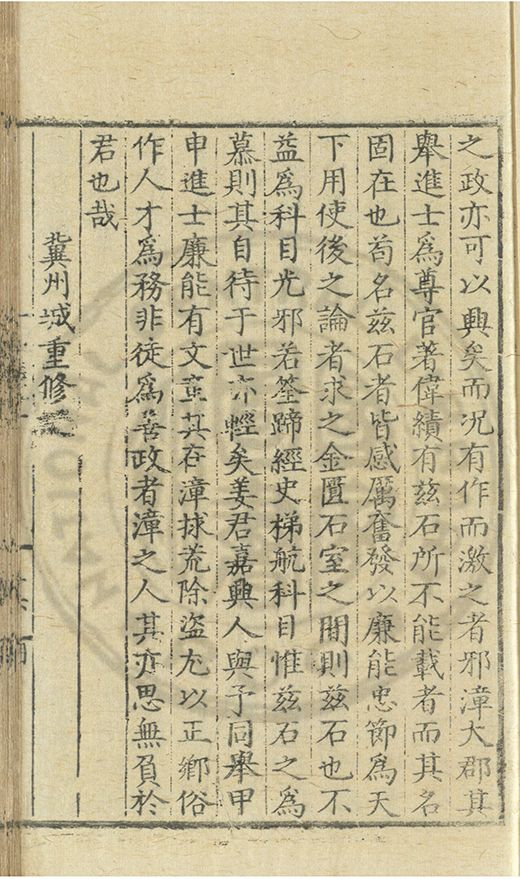 之政亦可以興矣而况有作而激之者邪漳大郡其
舉進士爲尊官著偉績有兹石所不能載者而其名
固在也茍名兹石者皆感厲奮發以廉能忠節爲天
下用使後之論者求之金匱石室之間則兹石也不
益爲科目光邪若筌蹄經史梯航科目惟兹石之爲
慕則其自待于世亦輕矣姜君嘉興人與予同舉甲
申進士廉能有文章其在漳捄荒除盗尤以正鄉俗
作人才爲務非徒爲善政者漳之人其亦思無負於
君也哉
冀州城重修